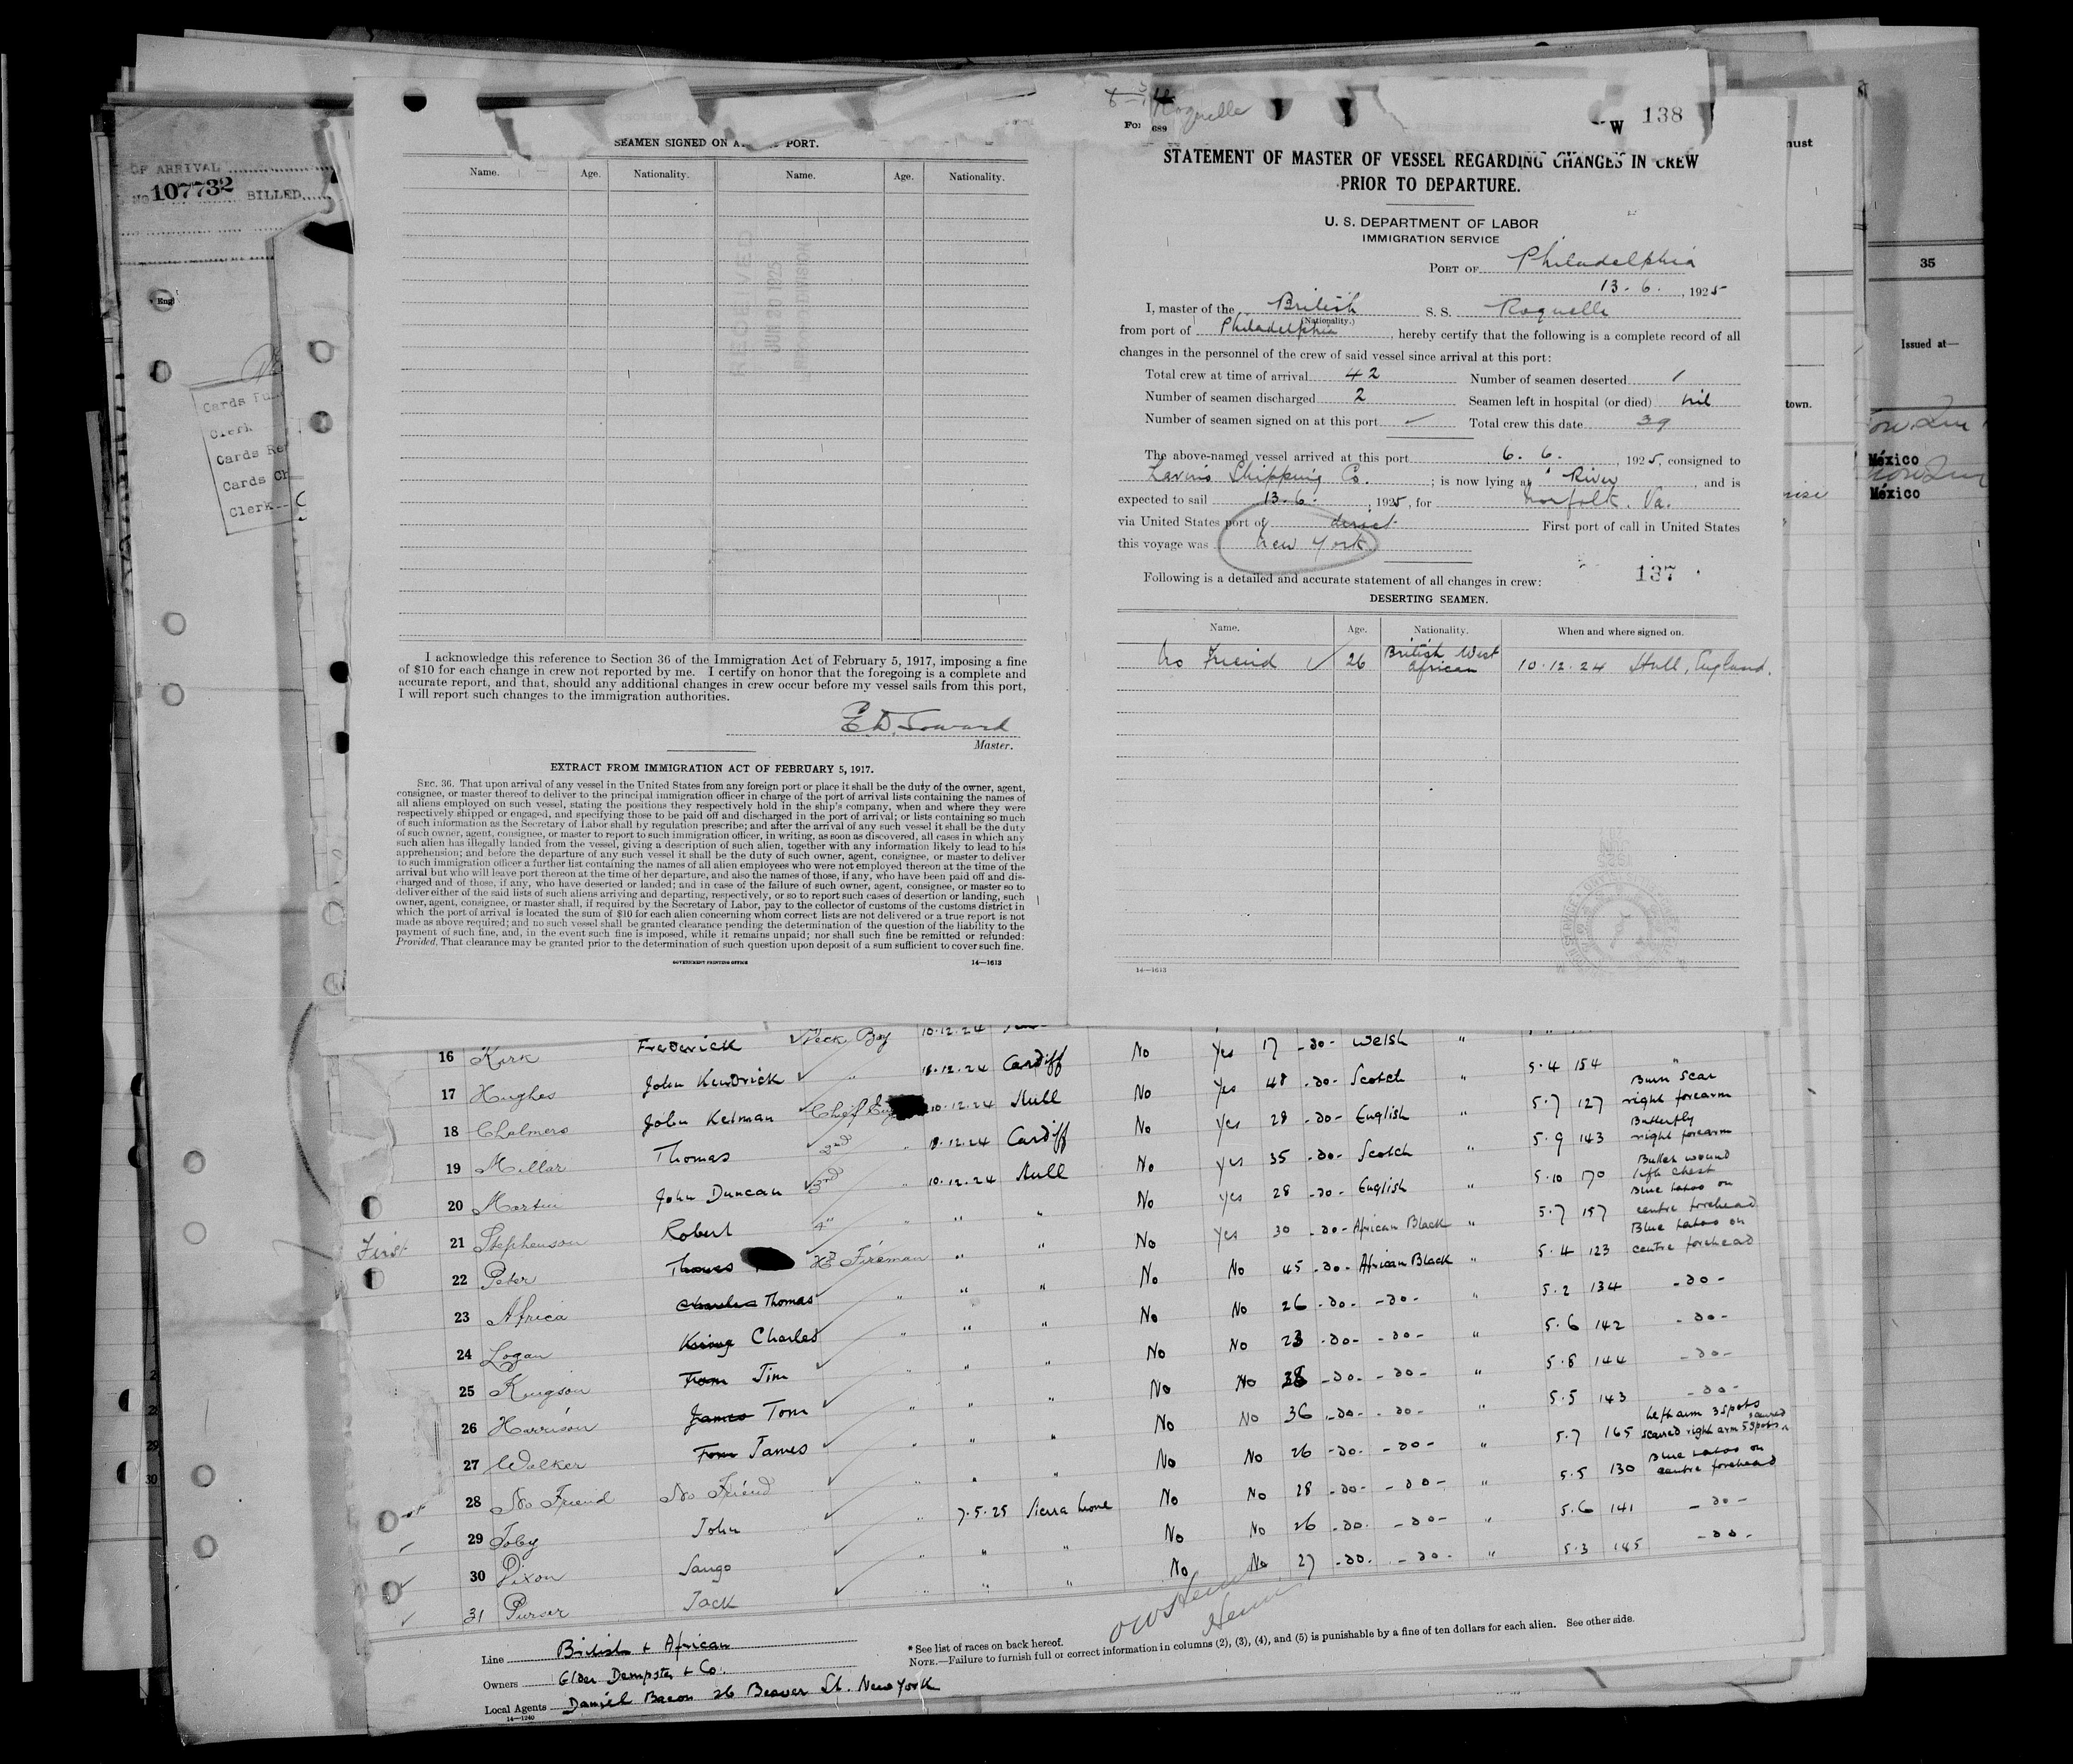 OF ARRIVAL
No 107732 BILLED
Cards
Clerk
Cards
Cards
Clerk
SEAMEN SIGNED ON PORT.
Name. Age. Nationality. Name. Age. Nationality.
RECEIVED
JUN 20 1925
I acknowledge this reference to Section 36 of the Immigration Act of February 5, 1917, imposing a fine
of $10 for each change in crew not reported by me. I certify on honor that the foregoing is a complete and
accurate report, and that, should any additional changes in crew occur before my vessel sails from this port,
I will report such changes to the immigration authorities.
Master.
EXTRACT FROM IMMIGRATION ACT OF FEBRUARY 5, 1917.
SEC. 36. That upon arrival of any vessel in the United States from any foreign port or place it shall be the duty of the owner, agent,
consignee, or master thereof to deliver to the principal immigration officer in charge of the port of arrival lists containing the names of
all aliens employed on such vessel, stating the positions they respectively hold in the ship's company, when and where they were
respectively shipped or engaged, and specifying those to be paid off and discharged in the port of arrival; or lists containing so much
of such information as the Secretary of Labor shall by regulation prescribe; and after the arrival of any such vessel it shall be the duty
of such owner, agent, consignee, or master to report to such immigration officer, in writing, as soon as discovered, all cases in which any
such alien has illegally landed from the vessel, giving a description of such alien, together with any information likely to lead to his
apprehension; and before the departure of any such vessel it shall be the duty of such owner, agent, consignee, or master to deliver
to such immigration officer a further list containing the names of all alien employees who were not employed thereon at the time of the
arrival but who will leave port thereon at the time of her departure, and also the names of those, if any, who have been paid off and dis-
charged and of those, if any, who have deserted or landed; and in case of the failure of such owner, agent, consignee, or master so to
deliver either of the said lists of such aliens arriving and departing, respectively, or so to report such cases of desertion or landing, such
owner, agent, consignee, or master shall, if required by the Secretary of Labor, pay to the collector of customs of the customs district in
which the port of arrival is located the sum of $10 for each alien concerning whom correct lists are not delivered or a true report is not
made as above required; and no such vessel shall be granted clearance pending the determination of the question of the liability to the
payment of such fine, and, in the event such fine is imposed, while it remains unpaid; nor shall such fine be remitted or refunded:
Provided, That clearance may be granted prior to the determination of such question upon deposit of a sum sufficient to cover such fine.
GOVERNMENT PRINTING OFFICE 14—1613
Roquelle
W 138
STATEMENT OF MASTER OF VESSEL REGARDING CHANGES IN CREW
PRIOR TO DEPARTURE.
U. S. DEPARTMENT OF LABOR
IMMIGRATION SERVICE
PORT OF Philadelphia
13.6. , 1925
I, master of the British S. S. Roquelle
(Nationality.)
from port of Philadelphia , hereby certify that the following is a complete record of all
changes in the personnel of the crew of said vessel since arrival at this port:
Total crew at time of arrival 42 Number of seamen deserted 1
Number of seamen discharged 2 Seamen left in hospital (or died) nil
Number of seamen signed on at this port Total crew this date 39
The above-named vessel arrived at this port 6. 6. , 1925, consigned to
Lavino Shipping Co. ; is now lying at River , and is
expected to sail 13.6. , 1925, for Norfolk. Va.
via United States port of direct First port of call in United States
this voyage was New York
Following is a detailed and accurate statement of all changes in crew: 137
DESERTING SEAMEN.
Name. Age. Nationality. When and where signed on.
No Friend 26 British West African 10.12.24 Hull, England.
14—1613
35
Issued at—
town.
México
México
16 Kirk Frederick Deck Boy 10.12.24 No Yes 17 -do- Welsh "
17 Hughes John Kendrick " 18.12.24 Cardiff No Yes 48 -do- Scotch " 5.4 154
18 Chalmers John Kelman Chief Eng 10.12.24 Hull No Yes 28 -do- English " 5.7 127 Burn scar right forearm
19 Millar Thomas 2nd " 18.12.24 Cardiff No Yes 35 -do- Scotch " 5.9 143 Butterfly right forearm
20 Martin John Duncan 3rd " 10.12.24 Hull No Yes 28 -do- English " 5.10 170 Bullet wound left chest
21 Stephenson Robert 4" " " " No Yes 30 -do- African Black " 5.7 157 Blue tatoo on centre forehead
First
22 Peter Thomas Hd Fireman " " No No 45 -do- African Black " 5.4 123 Blue tatoo on centre forehead
23 Africa Charles Thomas " " " No No 26 -do- -do- " 5.2 134 -do-
24 Logan Charles " " " No No 23 -do- -do- " 5.6 142 -do-
25 Kingson Tom Jim " " " No No 38 -do- -do- " 5.8 144 -do-
26 Harrison James Tom " " " No No 36 -do- -do- " 5.5 143 -do-
27 Walker Tom James " " " No No 26 -do- -do- " 5.7 165 Left arm 3 spots scarred right arm 5 spots
28 No Friend No Friend " " " No No 28 -do- -do- " 5.5 130 Blue tatoo on centre forehead
29 Toby John " 7.5.25 Sierra Leone No No 26 -do- -do- " 5.6 141 -do-
30 Dixon Sango " " " No No 27 -do- -do- " 5.3 145 -do-
31 Purser Jack " " "
Line British & African
Owners Elder Dempster & Co.
Local Agents Daniel Bacon 26 Beaver St. New York
14—1240
* See list of races on back hereof.
NOTE.—Failure to furnish full or correct information in columns (2), (3), (4), and (5) is punishable by a fine of ten dollars for each alien. See other side.